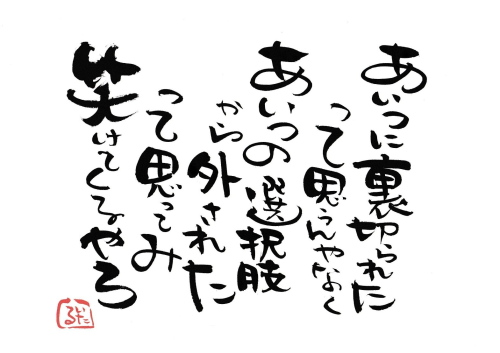 あいつに裏切られた
って思うんやなく
あいつの選択肢
から外された
って思ってみ
笑けてくるやろ